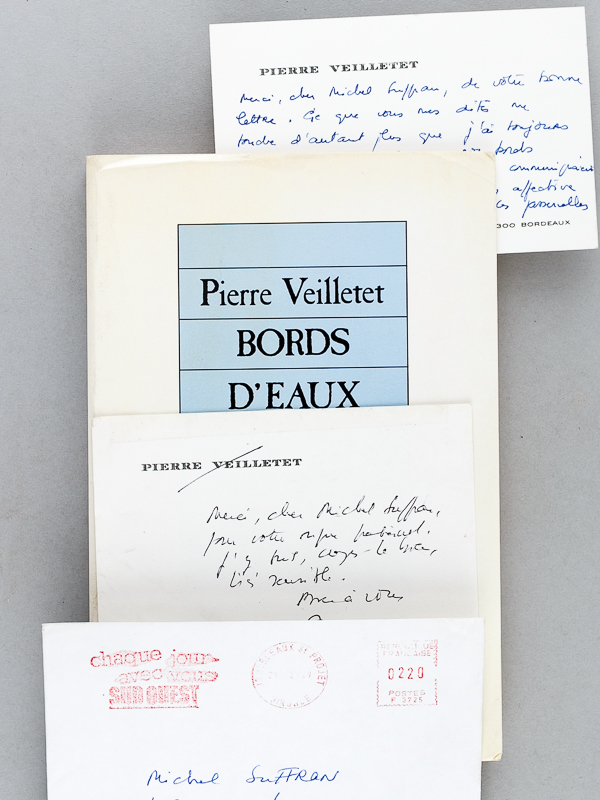 PIERRE VEILLETET
Merci, cher Michel Suffran, de votre bonne
lettre. Ce que vous me dites me
touche d'autant plus que j'ai toujours
bords
affective
passerelles
300 BORDEAUX
Pierre Veilletet
BORDS
D'EAUX
PIERRE VEILLETET
Merci, cher Michel Suffran,
pour votre signe
J'y suis, croyez-le bien,
très sensible.
Bien à vous
chaque jour
avec vous
SUD OUEST
REPUBLIQUE
FRANÇAISE
0220
POSTES
Michel SUFFRAN